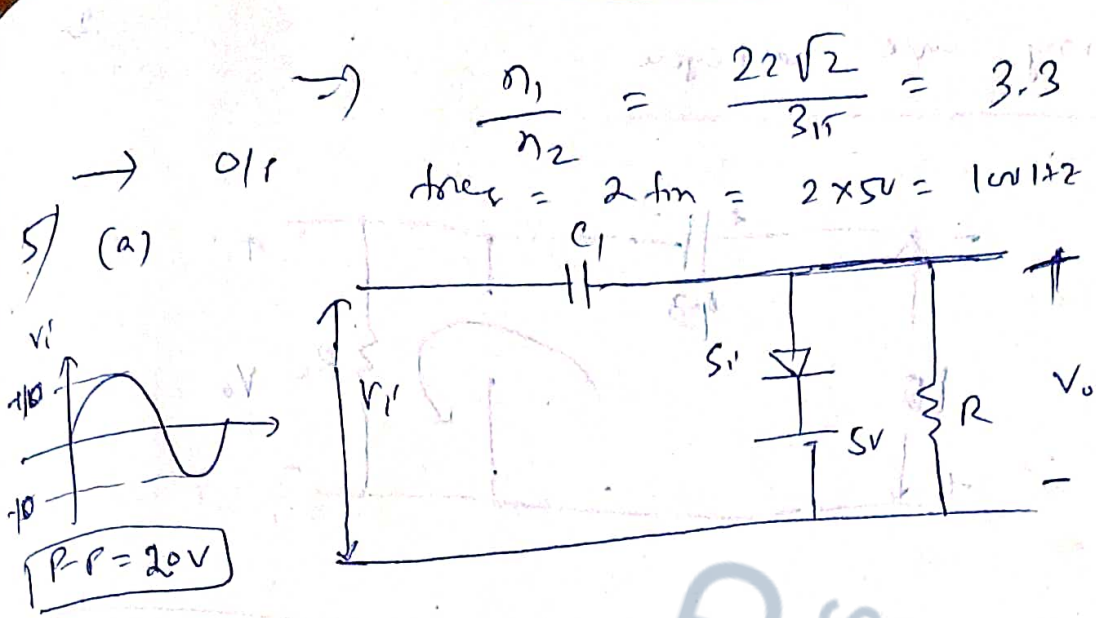 ⇒ n₁/n₂ = 22√2/3π = 3.3
→ O/P freq = 2 fin = 2 x 50 = 100 Hz
5) (a)
C₁
Vi
+10
-10
P-P = 20V
Vi
Si
5V
R
+
Vo
-